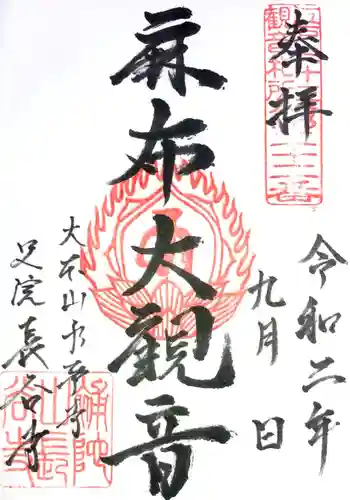 奉拝
令和二年
九月 日
麻布大観音
大本山永平寺
別院長谷寺